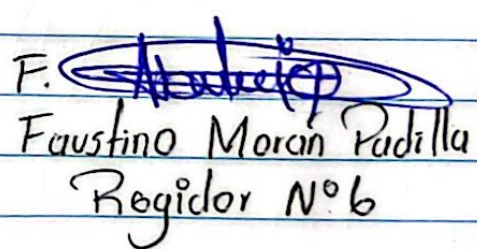 F.
Faustino Morán Padilla
Regidor Nº 6